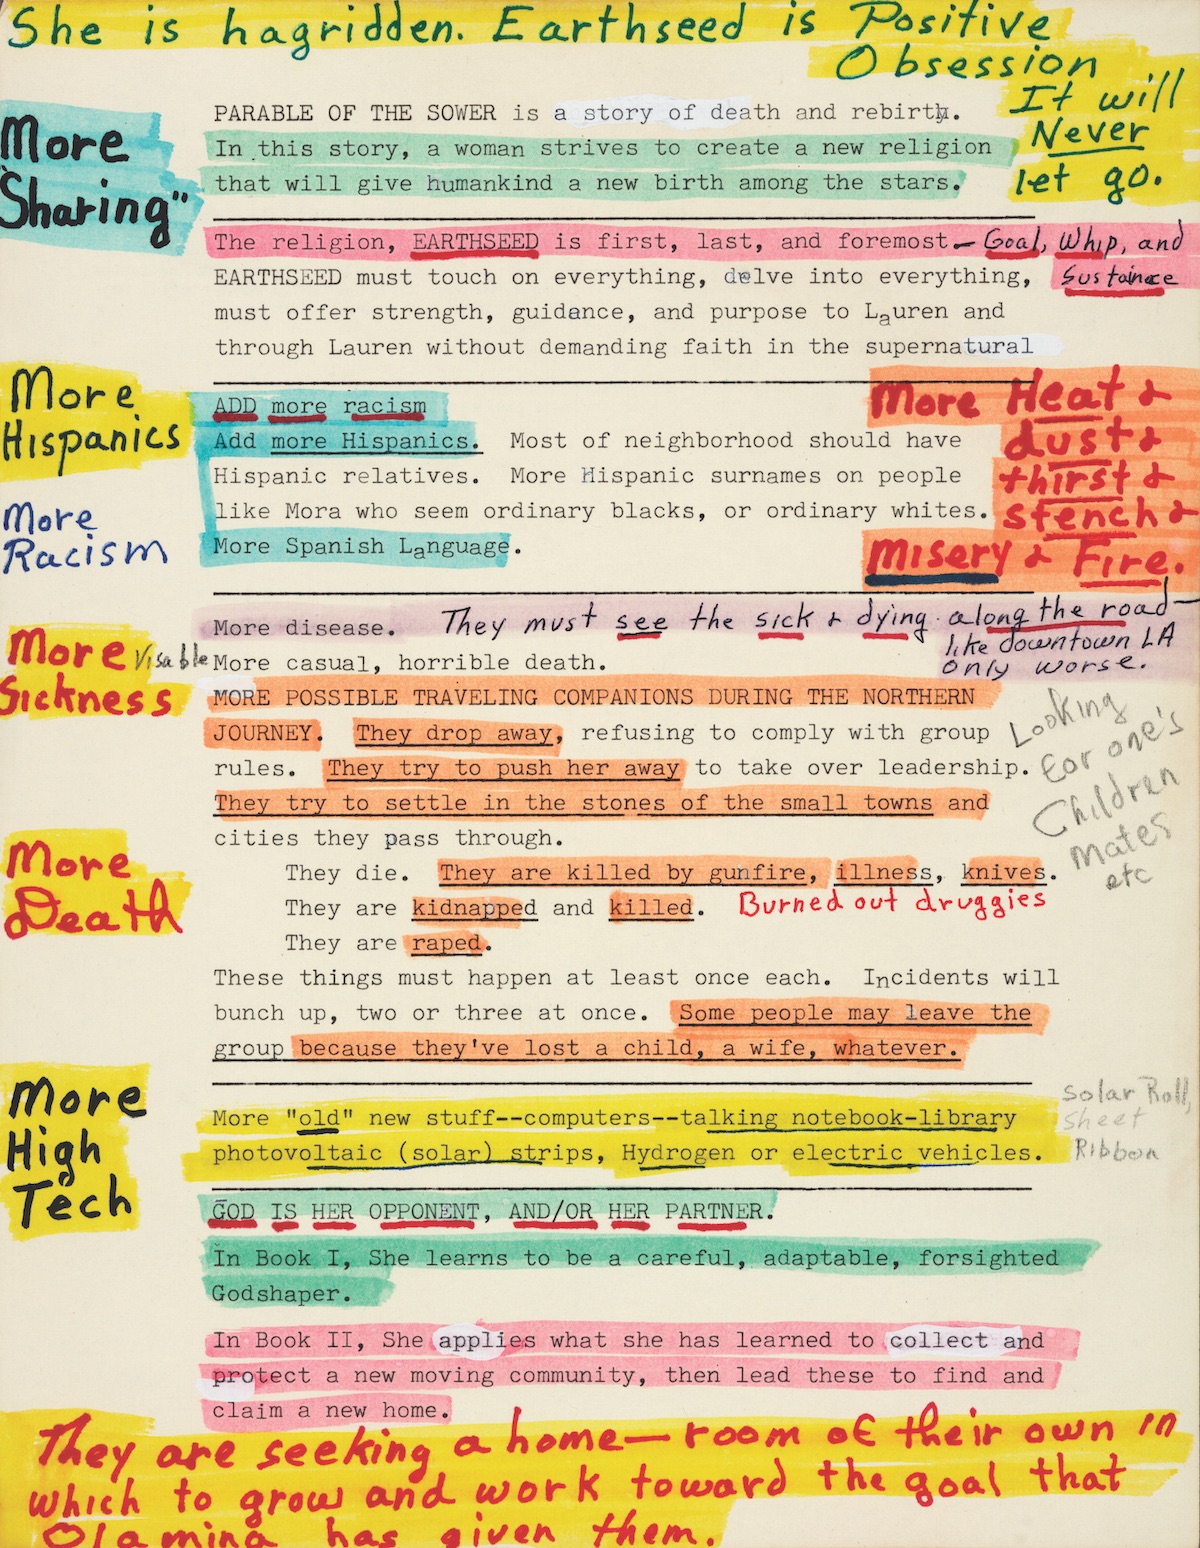 She is hagridden. Earthseed is Positive
Obsession
It will
Never
let go.
More
"Sharing"
PARABLE OF THE SOWER is a story of death and rebirth.
In this story, a woman strives to create a new religion
that will give humankind a new birth among the stars.
The religion, EARTHSEED is first, last, and foremost — Goal, Whip, and
Sustaince
EARTHSEED must touch on everything, delve into everything,
must offer strength, guidance, and purpose to Lauren and
through Lauren without demanding faith in the supernatural
More
Hispanics
More
Racism
ADD more racism
Add more Hispanics. Most of neighborhood should have
Hispanic relatives. More Hispanic surnames on people
like Mora who seem ordinary blacks, or ordinary whites.
More Spanish Language.
More Heat &
dust &
thirst &
stench &
misery & Fire.
More disease. They must see the sick & dying along the road—
like downtown LA
only worse.
More Visable
Sickness
More casual, horrible death.
MORE POSSIBLE TRAVELING COMPANIONS DURING THE NORTHERN
JOURNEY. They drop away, refusing to comply with group
rules. They try to push her away to take over leadership.
They try to settle in the stones of the small towns and
cities they pass through.
Looking
for one's
Children
mates
etc
More
Death
They die. They are killed by gunfire, illness, knives.
They are kidnapped and killed. Burned out druggies
They are raped.
These things must happen at least once each. Incidents will
bunch up, two or three at once. Some people may leave the
group because they've lost a child, a wife, whatever.
More
High
Tech
More "old" new stuff--computers--talking notebook-library
photovoltaic (solar) strips, Hydrogen or electric vehicles.
Solar Roll,
sheet
Ribbon
GOD IS HER OPPONENT, AND/OR HER PARTNER.
In Book I, She learns to be a careful, adaptable, forsighted
Godshaper.
In Book II, She applies what she has learned to collect and
protect a new moving community, then lead these to find and
claim a new home.
They are seeking a home—room of their own in
which to grow and work toward the goal that
Olamina has given them.